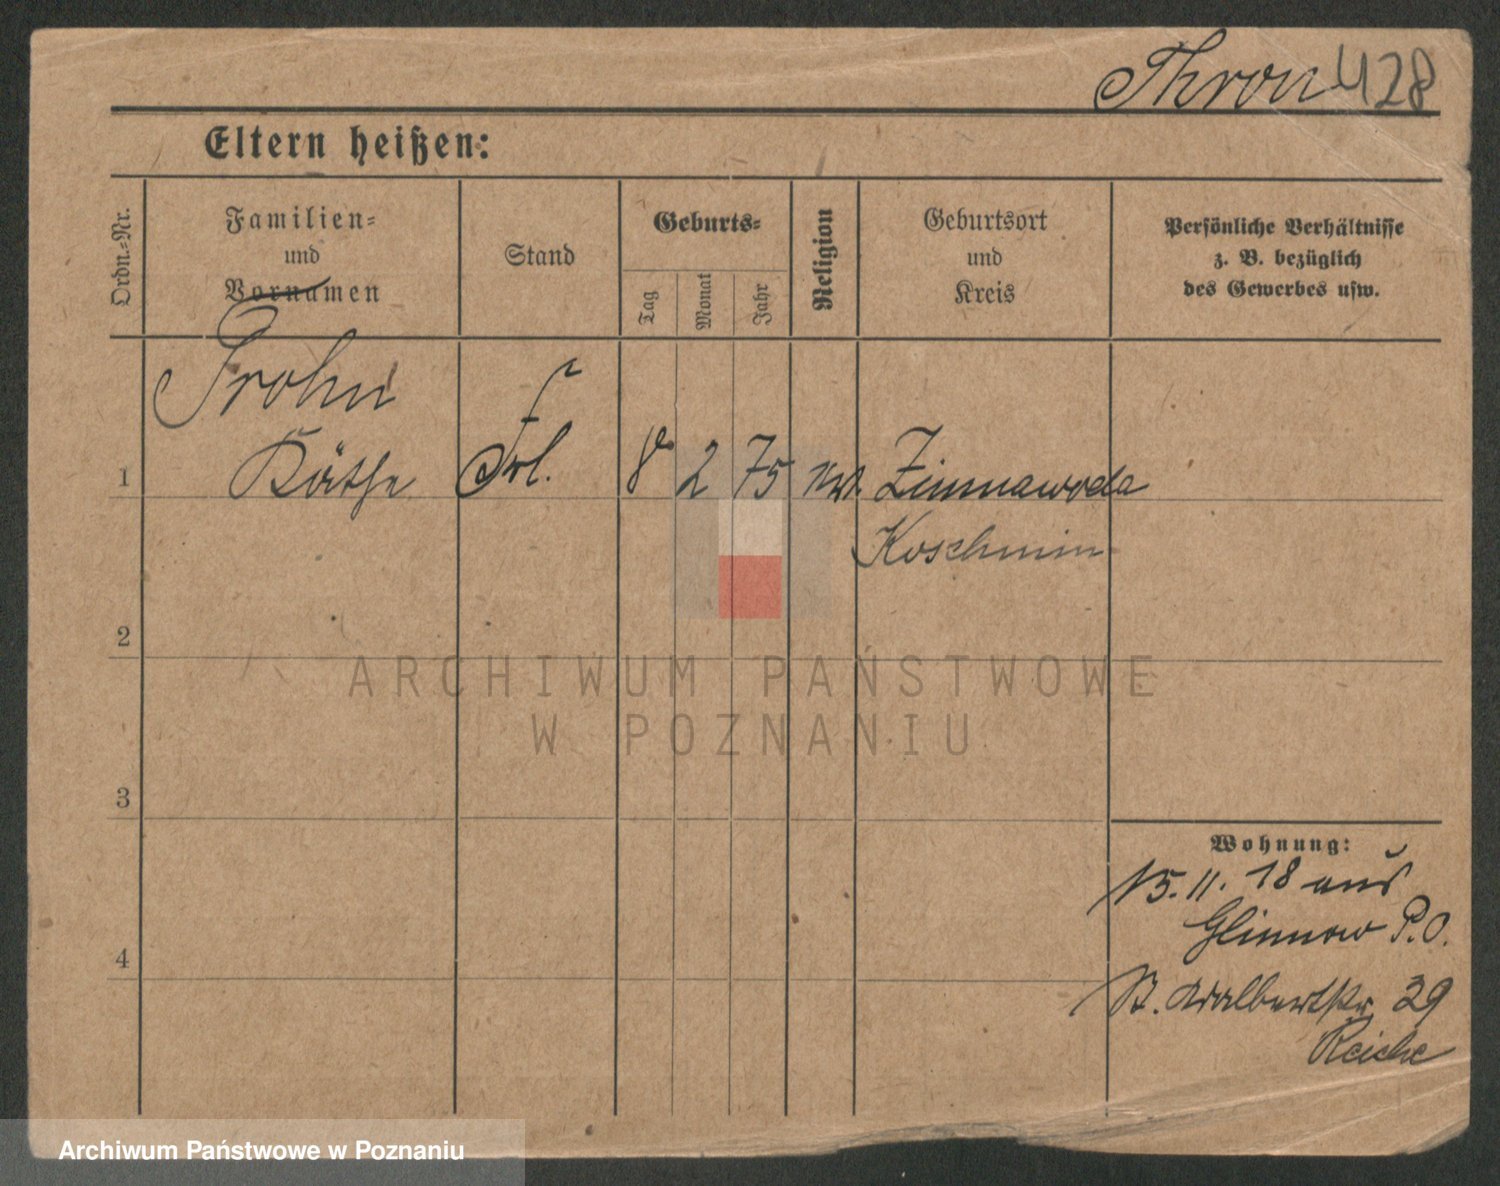 Thron 428
Eltern heißen:
Ordn.-Nr.
Familien-
und
Vornamen
Stand
Geburts-
Tag
Monat
Jahr
Religion
Geburtsort
und
Kreis
Persönliche Verhältnisse
z. B. bezüglich
des Gewerbes usw.
Frohn
1 Käthe Frl. 8 2 75 Zimnawoda
Koschmin
2
3
4
Wohnung:
15.11.18 aus
Glinnow P.O.
St. Adalbertstr. 39
Reiche
ARCHIWUM PAŃSTWOWE
W POZNANIU
Archiwum Państwowe w Poznaniu